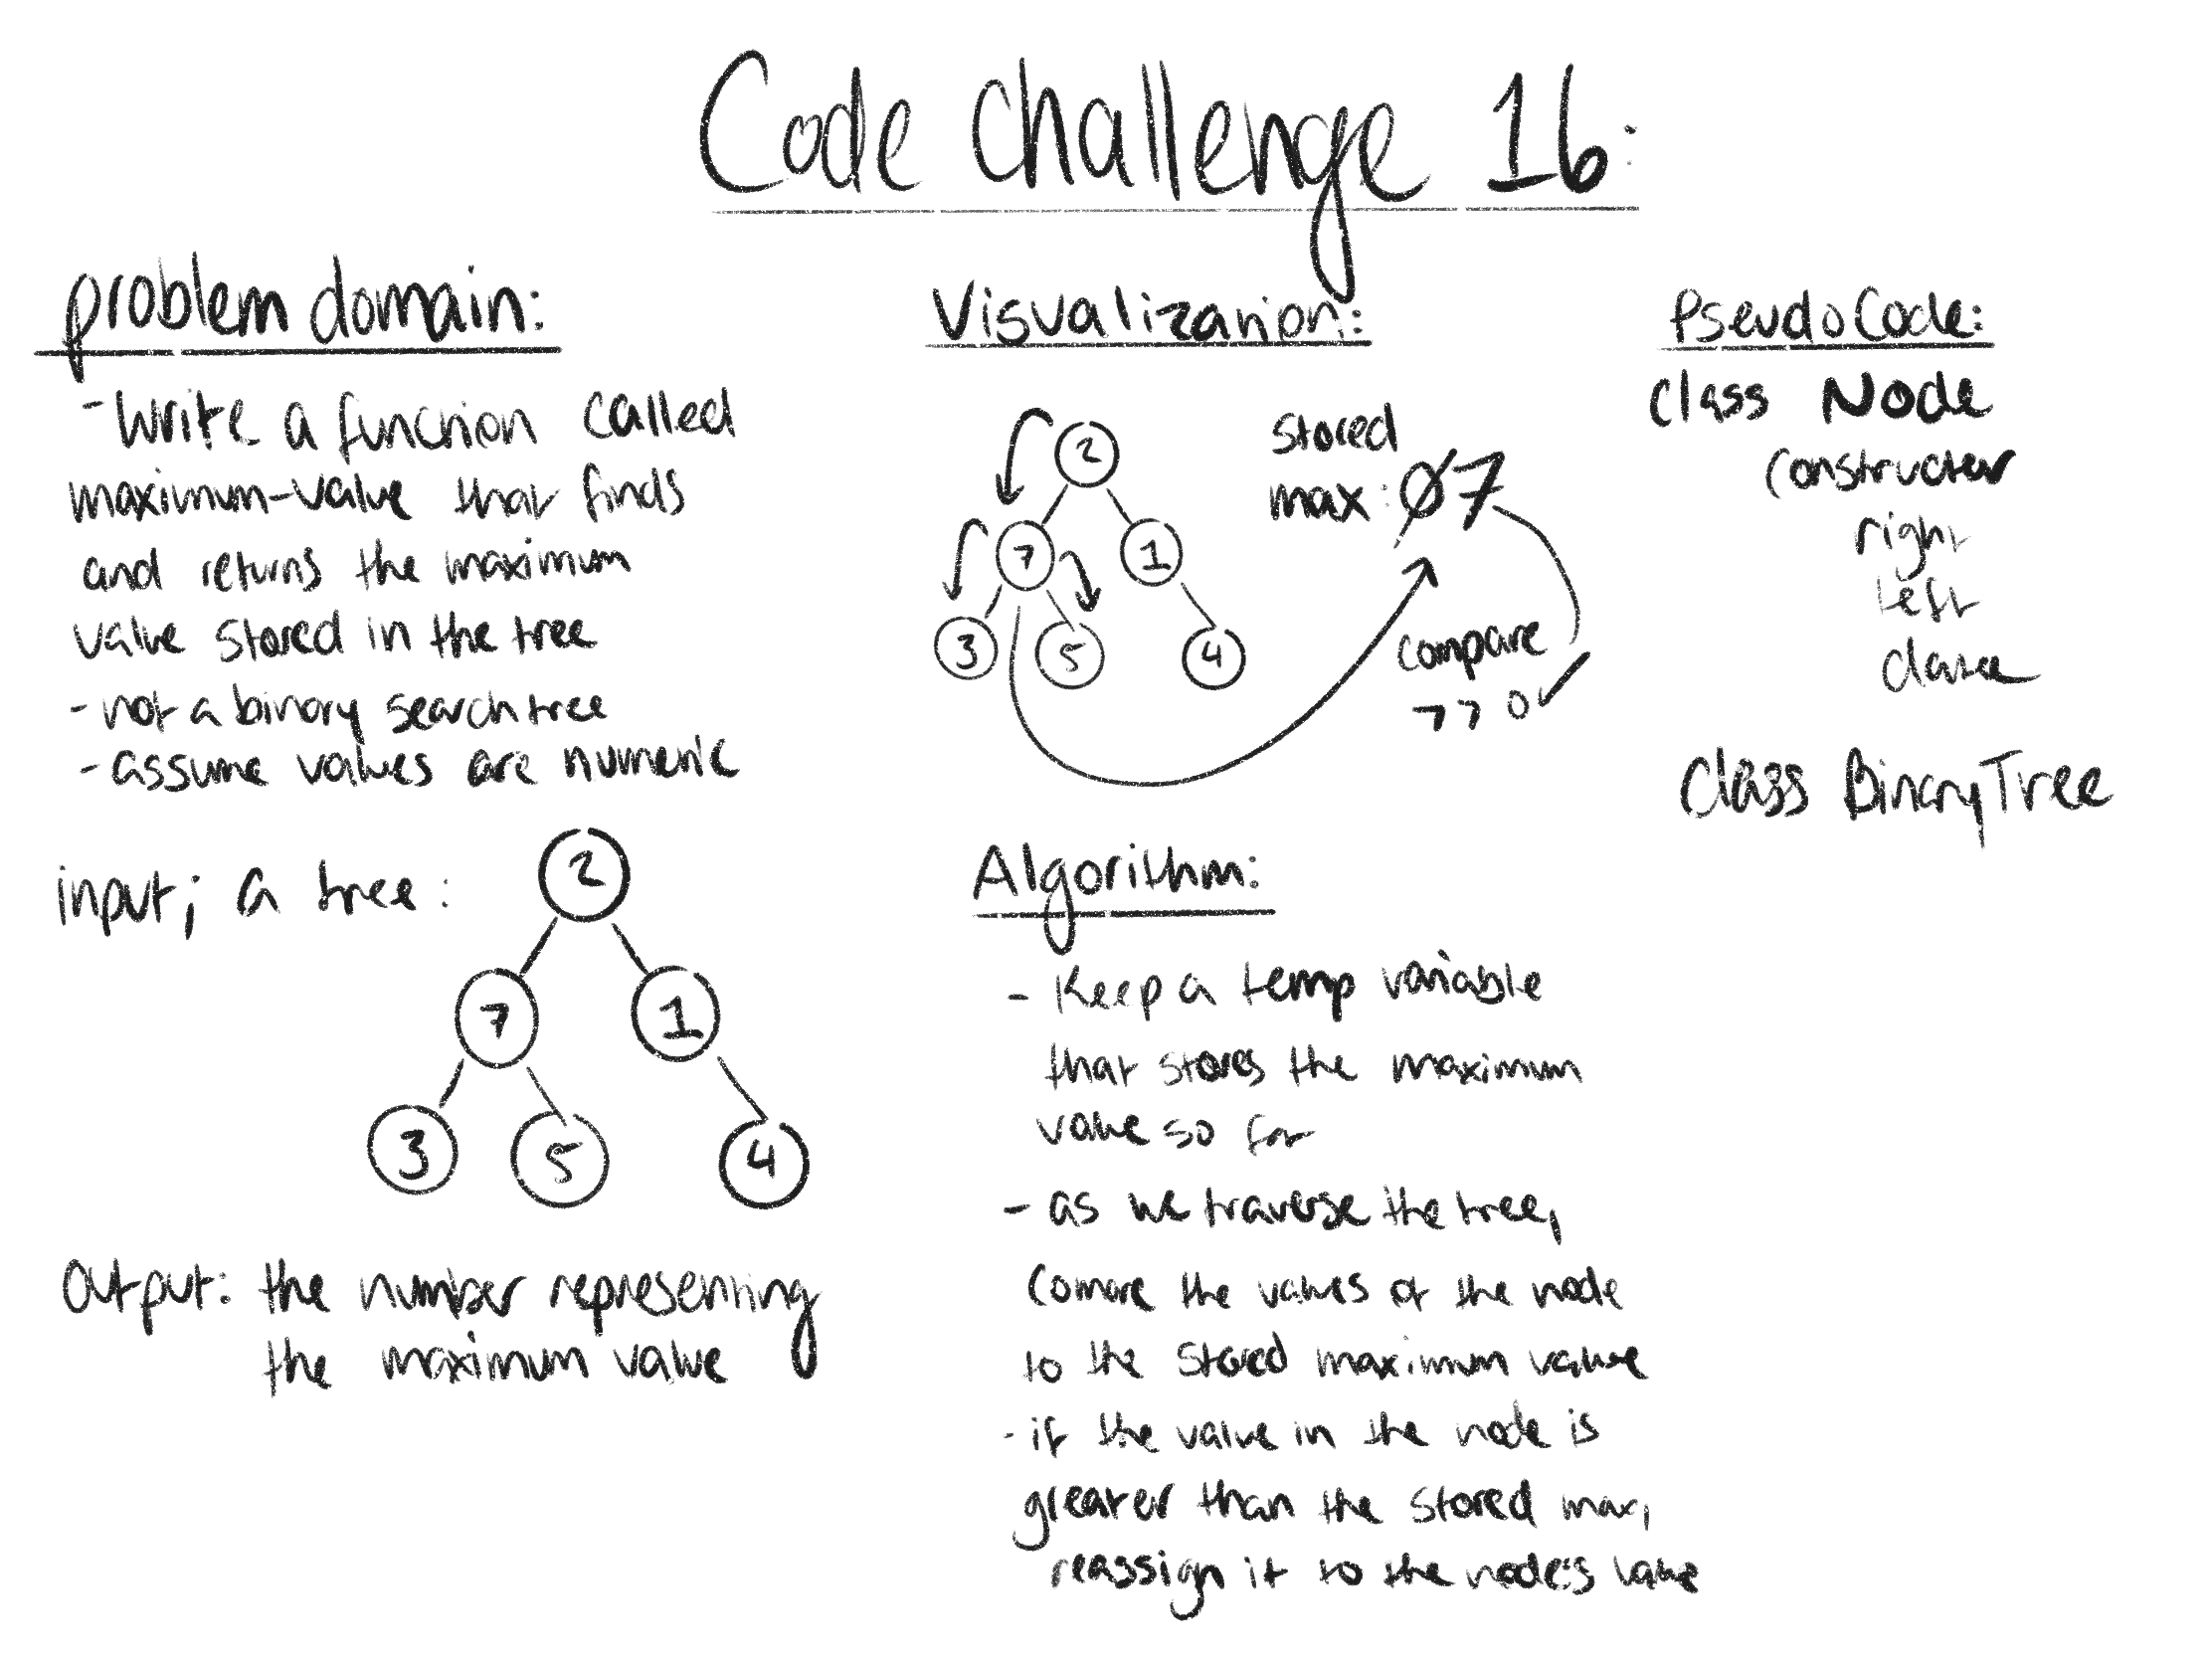 Code Challenge 16:
problem domain:
- Write a function called
maximum-value that finds
and returns the maximum
value stored in the tree
- not a binary search tree
- assume values are numeric
input; a tree:
2
7
1
3
5
4
output: the number representing
the maximum value
Visualization:
2
7
1
3
5
4
stored
max: 0 7
compare
7 > 0 ✓
Algorithm:
- Keep a temp variable
that stores the maximum
value so far
- as we traverse the tree,
comare the values of the node
to the stored maximum value
- if the value in the node is
greater than the stored max,
reassign it to the node's value
PseudoCode:
class Node
constructor
right
left
class BinaryTree